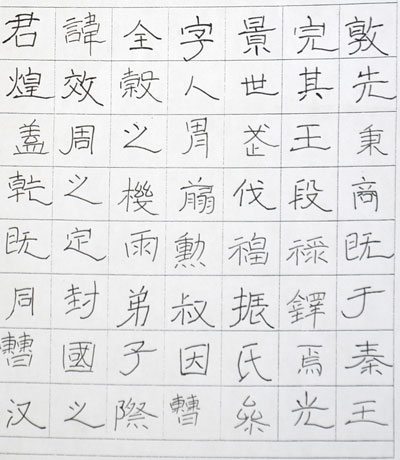 君諱全字景完敦
煌效穀人世其先
蓋周之胄武王秉
乾之機翦伐段商
既定雨勳福祿既
同封弟叔振鐸于
曹國子因氏焉秦
汉之際曹參光王